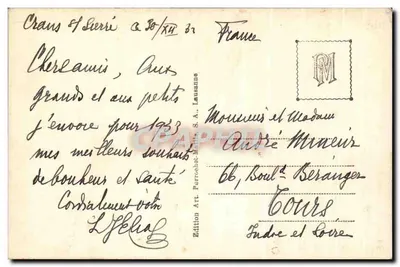 Crans s/ Sierre le 30/XII 32
France
Chers amis, Aux
grands et aux petits
j'envoie pour 1933
mes meilleurs souhaits
de bonheur et santé
Cordialement vôtre
Edition Art. Perrochet S. A., Lausanne
PM
Monsieur et Madame
André
66, Boulᵈ Béranger
Tours
Indre et Loire